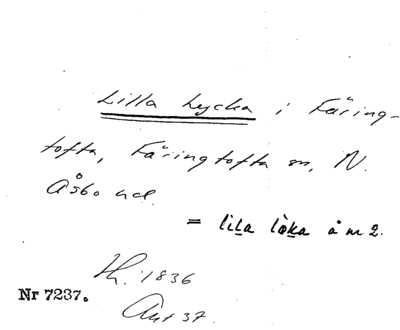 Lilla Lycka i Färing-
tofta, Färingtofta sn, N.
Åsbo hd.
= lila lòka å m 2.
Hh. 1836
Nr 7237.
Ant 37.